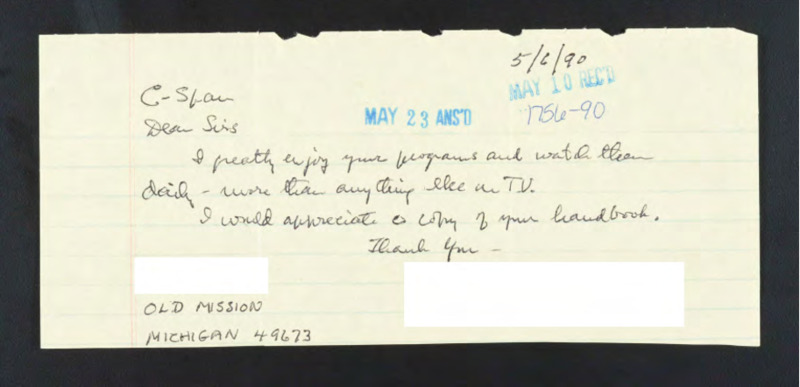 5/6/90
MAY 10 REC'D
C-Span
MAY 23 ANS'D
1756-90
Dear Sirs
I greatly enjoy your programs and watch them
daily - more than anything else on T.V.
I would appreciate a copy of your handbook.
Thank You -
OLD MISSION
MICHIGAN 49673